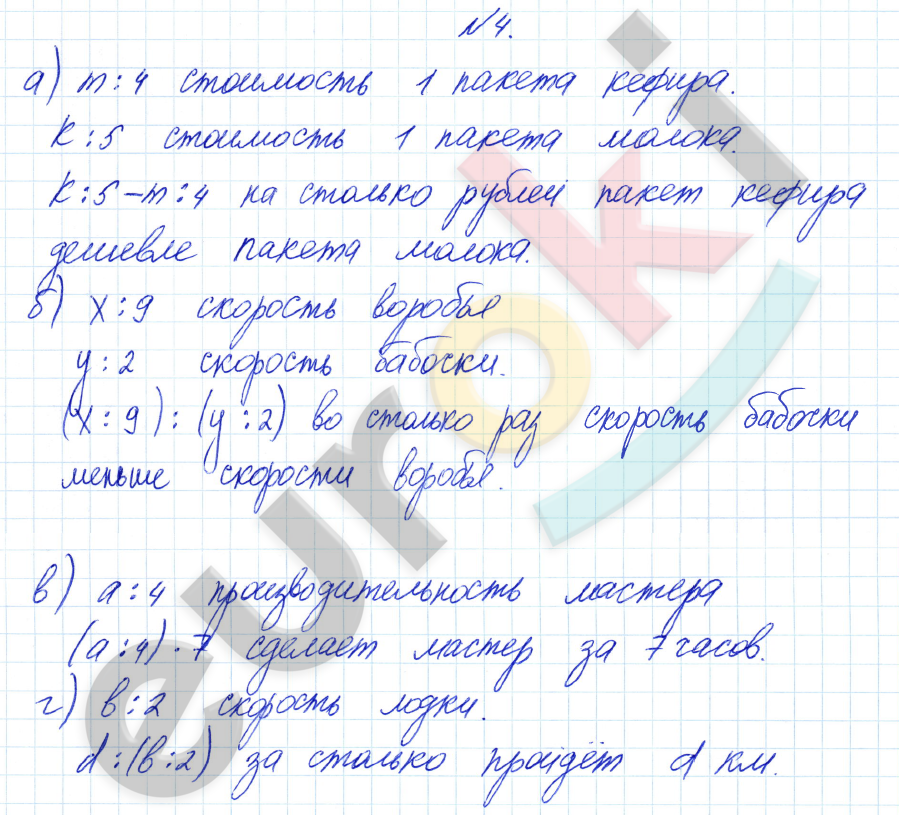 №4.
а) m:4 стоимость 1 пакета кефира.
k:5 стоимость 1 пакета молока.
k:5-m:4 на столько рублей пакет кефира
дешевле пакета молока.
б) x:9 скорость воробья
y:2 скорость бабочки.
(x:9):(y:2) во столько раз скорость бабочки
меньше скорости воробья.
в) a:4 производительность мастера
(a:4)·7 сделает мастер за 7 часов.
г) в:2 скорость лодки.
d:(в:2) за столько пройдёт d км.
euroki